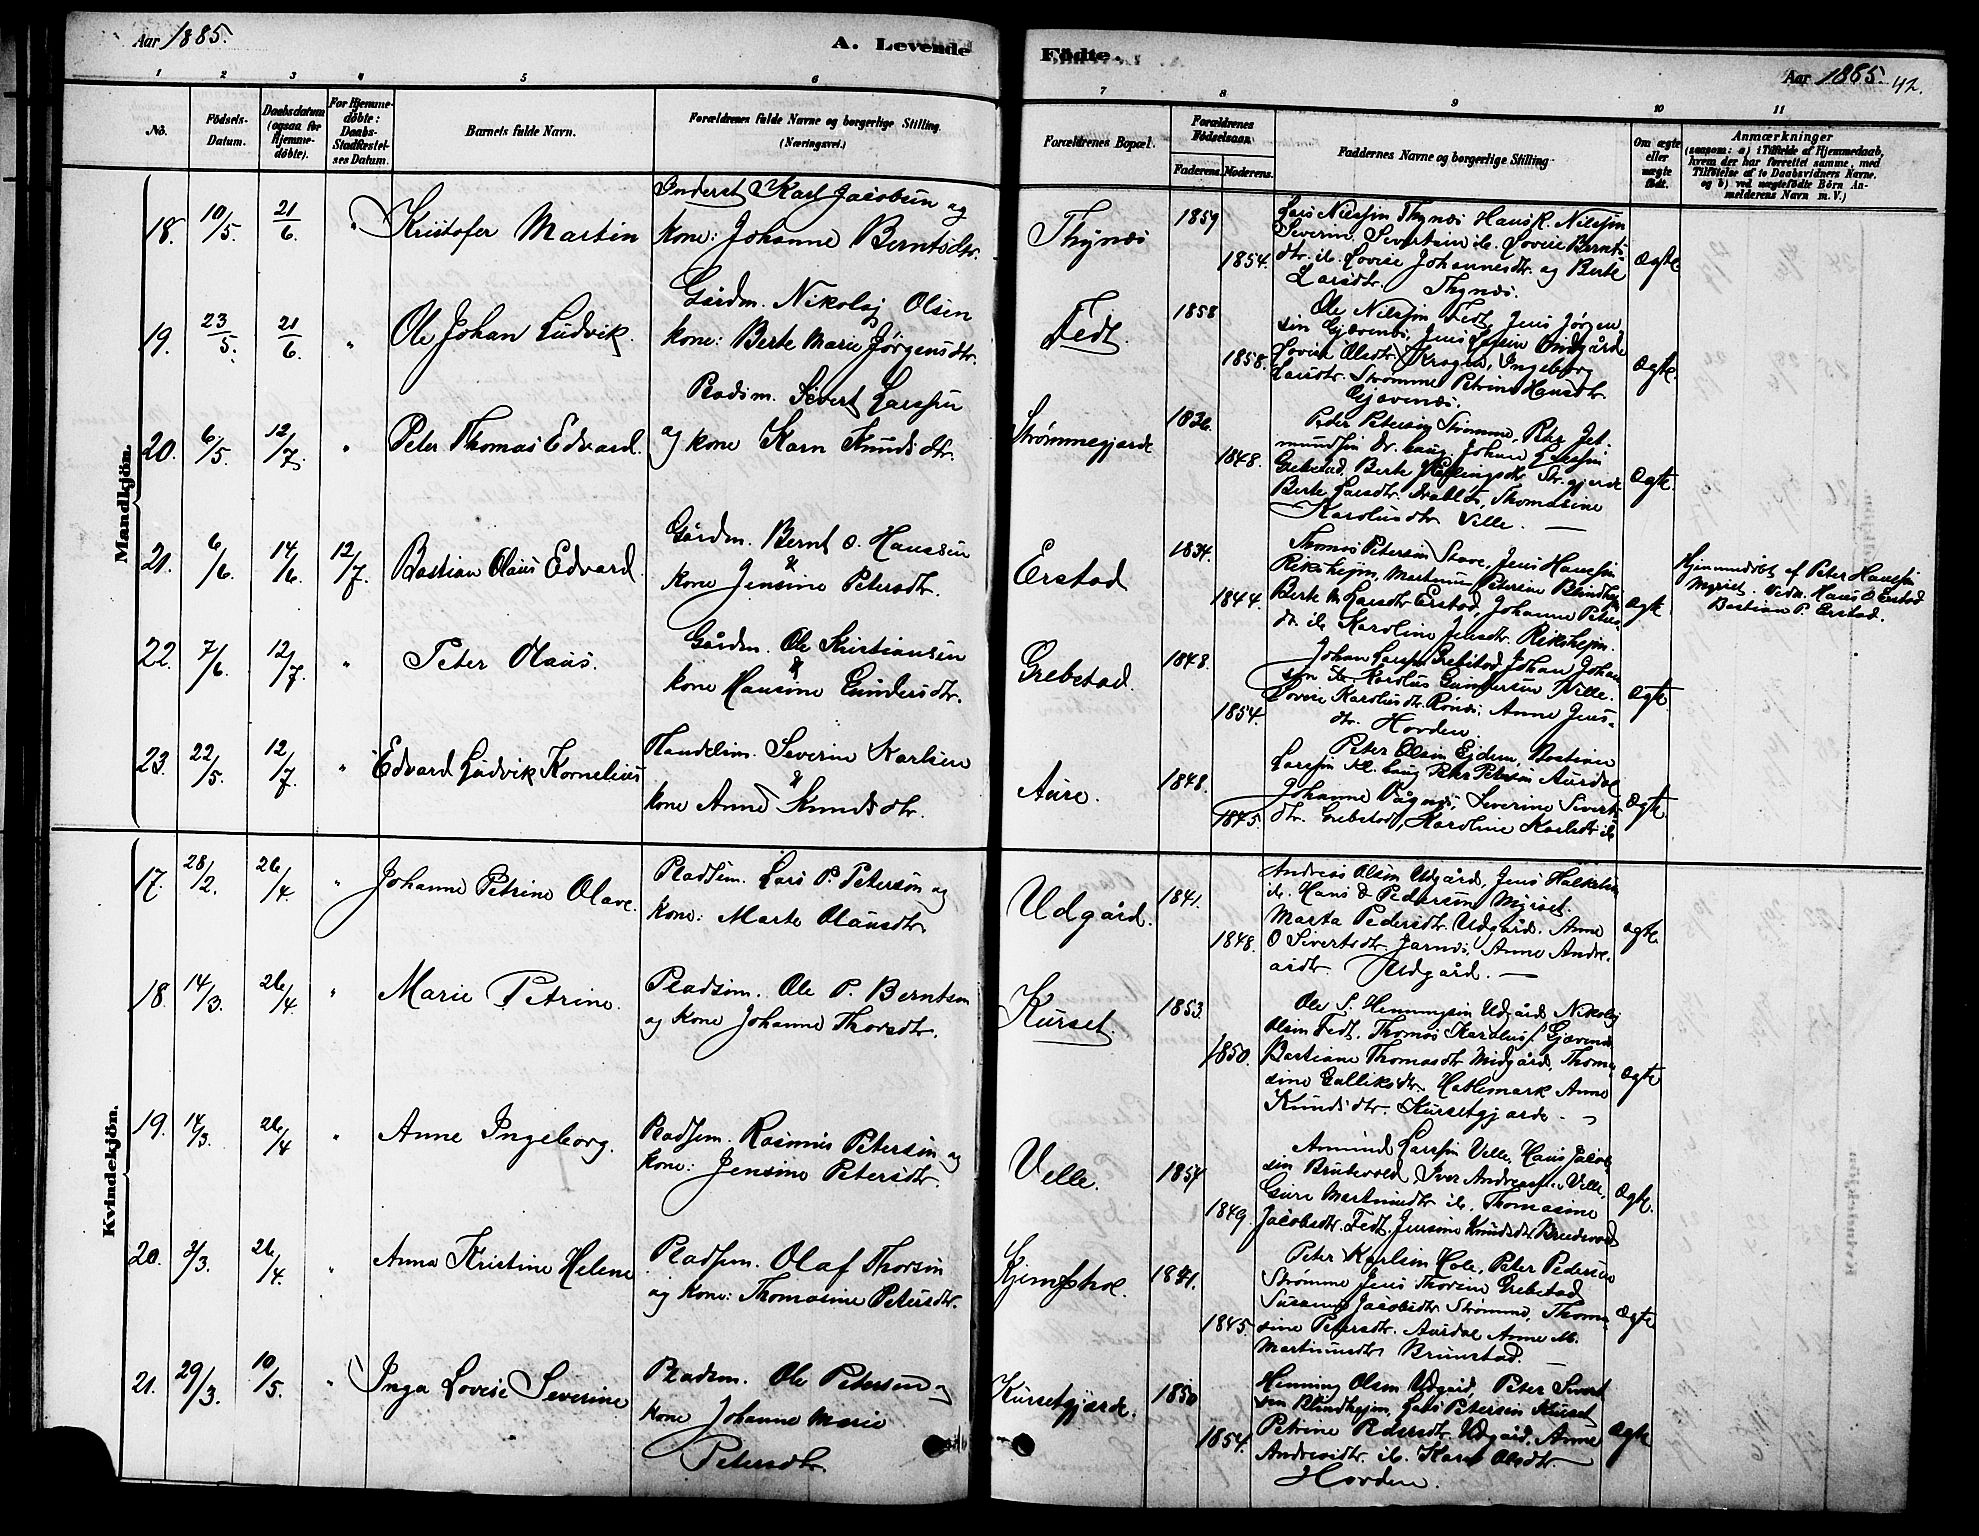 Aar 1885.
A. Levende
Födte.
Aar 1885.
42.
1 2 3 4 5 6 7 8 9 10 11
No.
Födsels-Datum.
Daabsdatum (ogsaa for Hjemme-döbte).
For Hjemme-döbte: Daabs-Stadfæstel-ses Datum.
Barnets fulde Navn.
Forældrenes fulde Navne og borgerlige Stilling. (Næringsvei.)
Forældrenes Bopæl.
Forældrenes Födselsaar.
Faderens. Moderens.
Faddernes Navne og borgerlige Stilling.
Om ægte eller uægte födt.
Anmærkninger
(saasom: a) i Tilfælde af Hjemmedaab, hvem der har forrettet samme, med Tilföielse af to Daabsvidners Navne, og b) ved uægtefödte Börn An-melderens Navn m. V.)
Mandkjön.
18. 10/5. 21/6 " Kristofer Martin
Inderst Karl Jacobsen og
kone: Johanne Berntsdtr.
Thynæs 1859 1854.
Lars Nilssen Thynæs Hans K. Nilssen
Severin Severtsen ib. Lovise Bernts-
dtr. ib. Lovise Johannesdtr og Berte
Larsdtr. Thynæs.
Ægte
19. 23/5. 21/6 " Ole Johan Ludvik.
Gårdm. Nikolaj Olsen
kone: Berte Marie Jørgensdtr.
Fedt. 1858 1858.
Ole Nilssen Fedt, Jens Jørgen-
sen Gjævenæs, Jens Larsen Midgård
Lovise Olsdtr. Krogen, Ingeborg
Larsdtr. Strømme Petrine Hansdtr
Gjævenæs.
Ægte.
20. 6/5. 12/7. " Peter Thomas Edvard.
Pladsm. Sivert Larssen
og kone Karn Knudsdtr.
Strømmegjærde 1836. 1848.
Peder Petersen Strømme, Jet-
mundsen Johan Larssen
Grebstad, Berte Str.gjerde
Berte Larsdtr. Thomasine
Karolusdtr Velle.
Ægte.
21. 6/6. 14/6. 12/7. Bastian Olaus Edvard
Gårdm. Bernt O. Hanssen
&
kone Jensine Petersdtr.
Erstad 1834. 1844.
Thomas Petersen Stave, Jens Hanssen
Riksheim, Martinus Petersen Blindheim
Berte M. Larsdtr Erstad, Johanne Peters-
dtr ib. Karoline Jensdtr. Riksheim.
Ægte.
Hjemmedøbt af Peter Hanssen
Myrset. Vidn. Hans O Erstad
Bastian P. Erstad.
22. 7/6. 12/7. " Peter Olaus.
Gårdm. Ole Kristiansen
&
kone Hansine Gundersdtr.
Grebstad. 1848. 1854.
Johan Larssen Grebstad, Johan Johan-
sen ib. Karolus Gundersen Velle.
Lovise Karolusdtr. Anne Jens-
dtr. Hovden.
Ægte
23. 22/5. 12/7. " Edvard Ludvik Kornelius
Handelsm. Severin Karlsen
&
kone Anne Knudsdtr.
Aure. 1848. 1845.
Peter Olsen Ejdem, Bastian
Larssen Peter Petersen Aurdal
Johanne Vågnæs, Severine Severts-
dtr. Grebstad, Karoline Karlsdtr ib
Ægte
Kvindekjön.
17. 28/2. 26/4. " Johanne Petrine Olave.
Pladsem. Lars P. Petersen og
kone: Marte Olausdtr.
Udgård. 1841. 1848.
Andreas Olsen Udgård, Jens Halkelsen
ib. Hans D Pedersen Myrset.
Marta Pedersdtr. Udgård. Anne
O Sivertsdtr. Jarnæs, Anne Andre-
asdtr. Udgård.
ægte
18. 14/3. 26/4. " Marie Petrine.
Pladsem. Ole P. Berntsen
og kone Johanne Thorsdtr.
Kurset. 1853. 1850.
Ole S. Henningsen Udgård Nikolaj
Olsen Fedt. Thomas Karolus. Gjævenæs
Bastiane Thomasdtr Midgård, Thoma-
sine Gulliksdtr. Hatlemark Anne
Knudsdtr. Kursetgjærde.
Ægte
19. 14/3. 26/4 " Anne Ingeborg.
Pladsem. Rasmus Petersen og
kone: Jensine Petersdtr.
Velle. 1854 1849.
Amund Larssen Velle, Hans Jacob-
sen Brudevold, Iver Andreass. Velle,
Gure Martinusdtr ib. Thomasine
Jacobsdtr. Fedt, Jensine Knudsdtr. Brudevold
Ægte.
20. 2/3. 26/4. " Anna Kristine Helene
Pladsem. Olaf Thorsen
og Kone: Thomasine Petersdtr.
Kjempshol. 1841. 1845.
Peter Karlsen Hole, Peter Pedersen
Strømme Jens Thorsen Grebstad
Susanne Jacobsdtr Strømme, Thoma-
sine Petersdtr. Aurdal Anne M.
Martinusdtr Brunstad.
Ægte
21. 29/3. 10/5. " Inga Lovise Severine
Pladsm. Ole Petersen og
kone Johanne Marie
Petersdtr.
Kursetgjærde. 1850 1854.
Henning Olsen Udgård, Peter Sivert-
sen Blindheim, Lars Petersen Kurset
Petrine Pedersdtr. Udgård, Anne
Andreasdtr ib. Karen Olsdtr.
Hovden.
Ægte